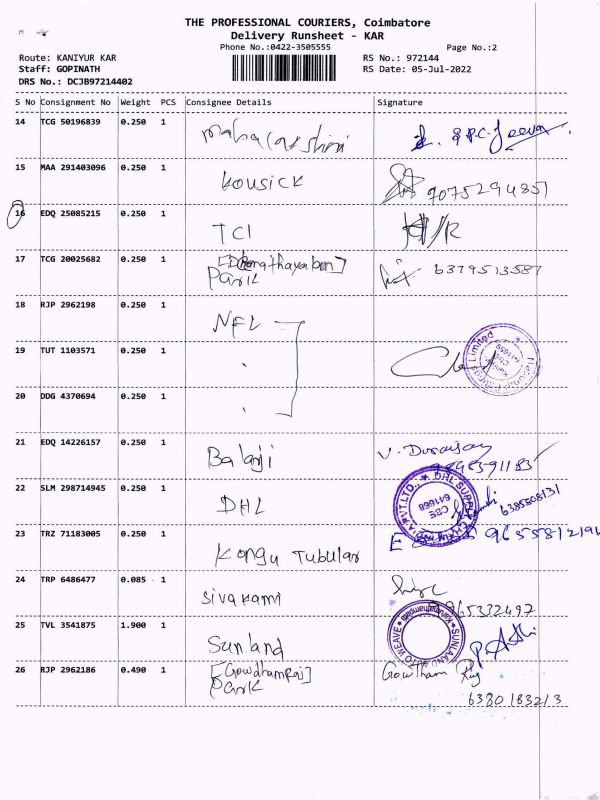 THE PROFESSIONAL COURIERS, Coimbatore
Delivery Runsheet - KAR
Phone No.:0422-3505555
Page No.:2
Route: KANIYUR KAR
RS No.: 972144
Staff: GOPINATH
RS Date: 05-Jul-2022
DRS No.: DCJB97214402
S No Consignment No Weight PCS Consignee Details Signature
14 TCG 50196839 0.250 1
15 MAA 291403096 0.250 1 Kousick 7075294857
16 EDQ 25085215 0.250 1 TCI
17 TCG 20025682 0.250 1 Park 6379513587
18 RJP 2962198 0.250 1 NFL
19 TUT 1103571 0.250 1
20 DDG 4370694 0.250 1
21 EDQ 14226157 0.250 1 Balaji
22 SLM 298714945 0.250 1 DHL
DHL SUPPLY CHAIN
CBE
641668
23 TRZ 71183005 0.250 1 Kongu Tubular
24 TRP 6486477 0.085 1 Sivakami
25 TVL 3541875 1.900 1 Sunland
SUNLAND AUTO WEAVE
Karumathampatti
26 RJP 2962186 0.490 1 [GowdhamRaj] Gowtham Raj
Park
6380183213